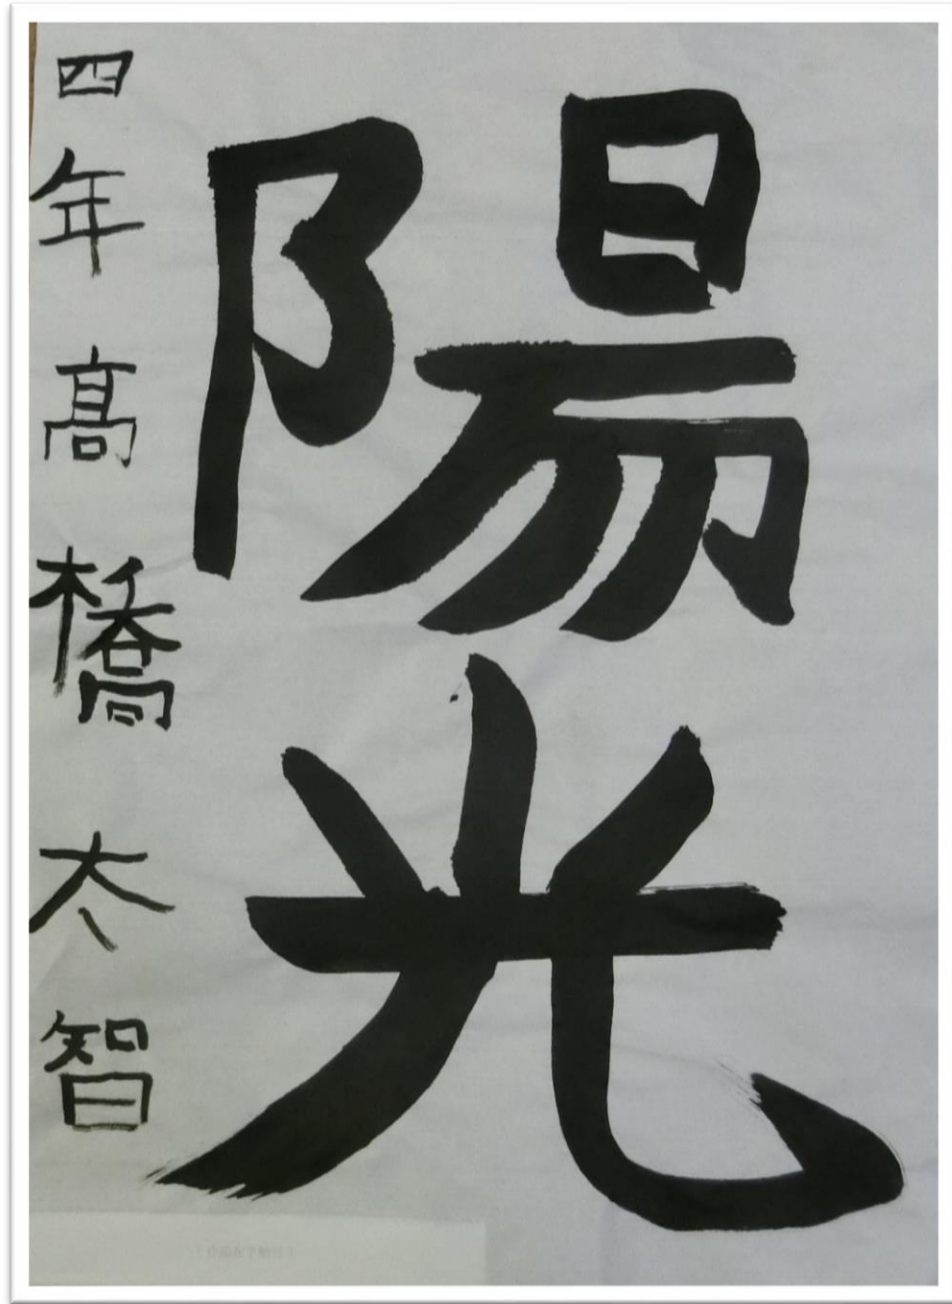 陽光
四年 髙橋太智